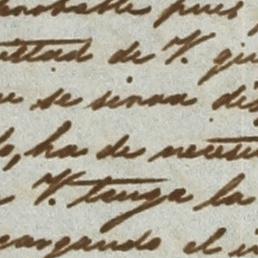 probable pues
ultad de V. que
se sirva dis
lo, ha de necesi
V. tenga la
cargando el